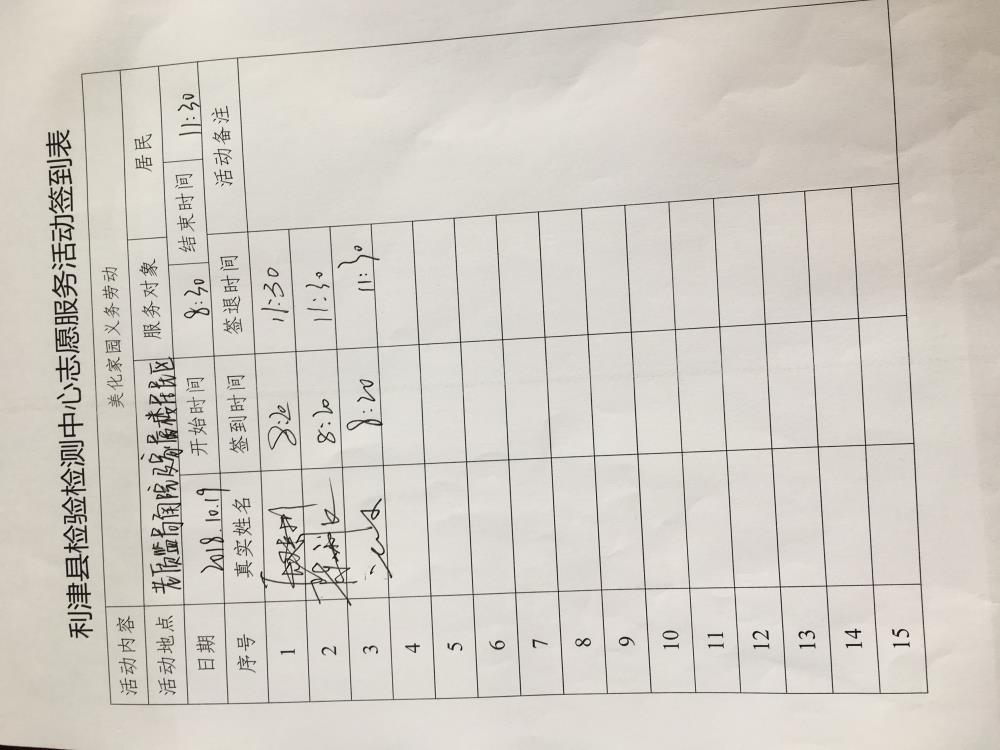 利津县检验检测中心志愿服务活动签到表
活动内容 美化家园义务劳动
活动地点 老质监局家属院及 服务对象 居民
日期 2018.10.19 开始时间 8:30 结束时间 11:30
序号 真实姓名 签到时间 签退时间 活动备注
1 8:20 11:30
2 8:20 11:30
3 8:20 11:30
4
5
6
7
8
9
10
11
12
13
14
15